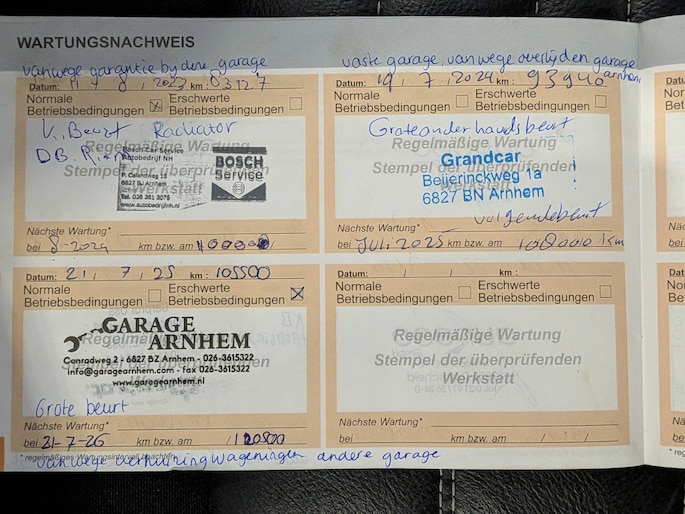 WARTUNGSNACHWEIS
vanwege garantie by dere garage
Datum: 8, 2023 km:
Normale Betriebsbedingungen ☒ Erschwerte Betriebsbedingungen ☐
K. Beurt Radiator
Regelmäßige Wartung
DB. Riem
Stempel der überprüfenden
Werkstatt
Bosch Car Service
Autobedrijf NH
6827 Arnhem
Tel. 026 361 3075
www.autobedrijfnh.nl
BOSCH
Service
Nächste Wartung*
bei 8-2024 km bzw. am
vaste garage, vanwege overlijden garage
arnhem
Datum: 19, 7, 2024 km: 93940
Normale Betriebsbedingungen ☐ Erschwerte Betriebsbedingungen ☐
Grote onderhoudsbeurt
Regelmäßige Wartung
Stempel der überprüfenden
Werkstatt
Grandcar
Beijerinckweg 1a
6827 BN Arnhem
volgende beurt
Nächste Wartung*
bei Juli 2025 km bzw. am 108000 km
Datum: 21, 7, 25 km: 105500
Normale Betriebsbedingungen ☐ Erschwerte Betriebsbedingungen ☒
GARAGE
ARNHEM
Conradweg 2 - 6827 BZ Arnhem - 026-3615322
info@garagearnhem.com - fax 026-3615322
www.garagearnhem.nl
Grote beurt
Nächste Wartung*
bei 21-7-26 km bzw. am 120500
* regelmäßiges Wartungsintervall beachten
vanwege verhuizing wageningen andere garage
Datum: / / km:
Normale Betriebsbedingungen ☐ Erschwerte Betriebsbedingungen ☐
Regelmäßige Wartung
Stempel der überprüfenden
Werkstatt
Nächste Wartung*
bei km bzw. am / /